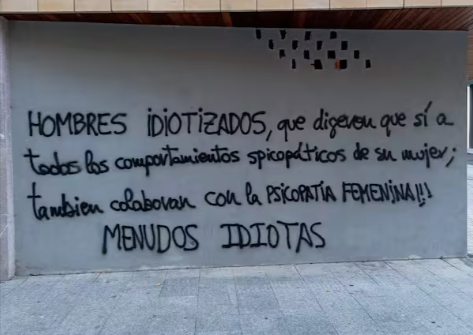 HOMBRES IDIOTIZADOS, que digeron que sí a
todos los comportamientos spicopáticos de su mujer;
tambien colaboran con la PSICOPATIA FEMENINA!!
MENUDOS IDIOTAS